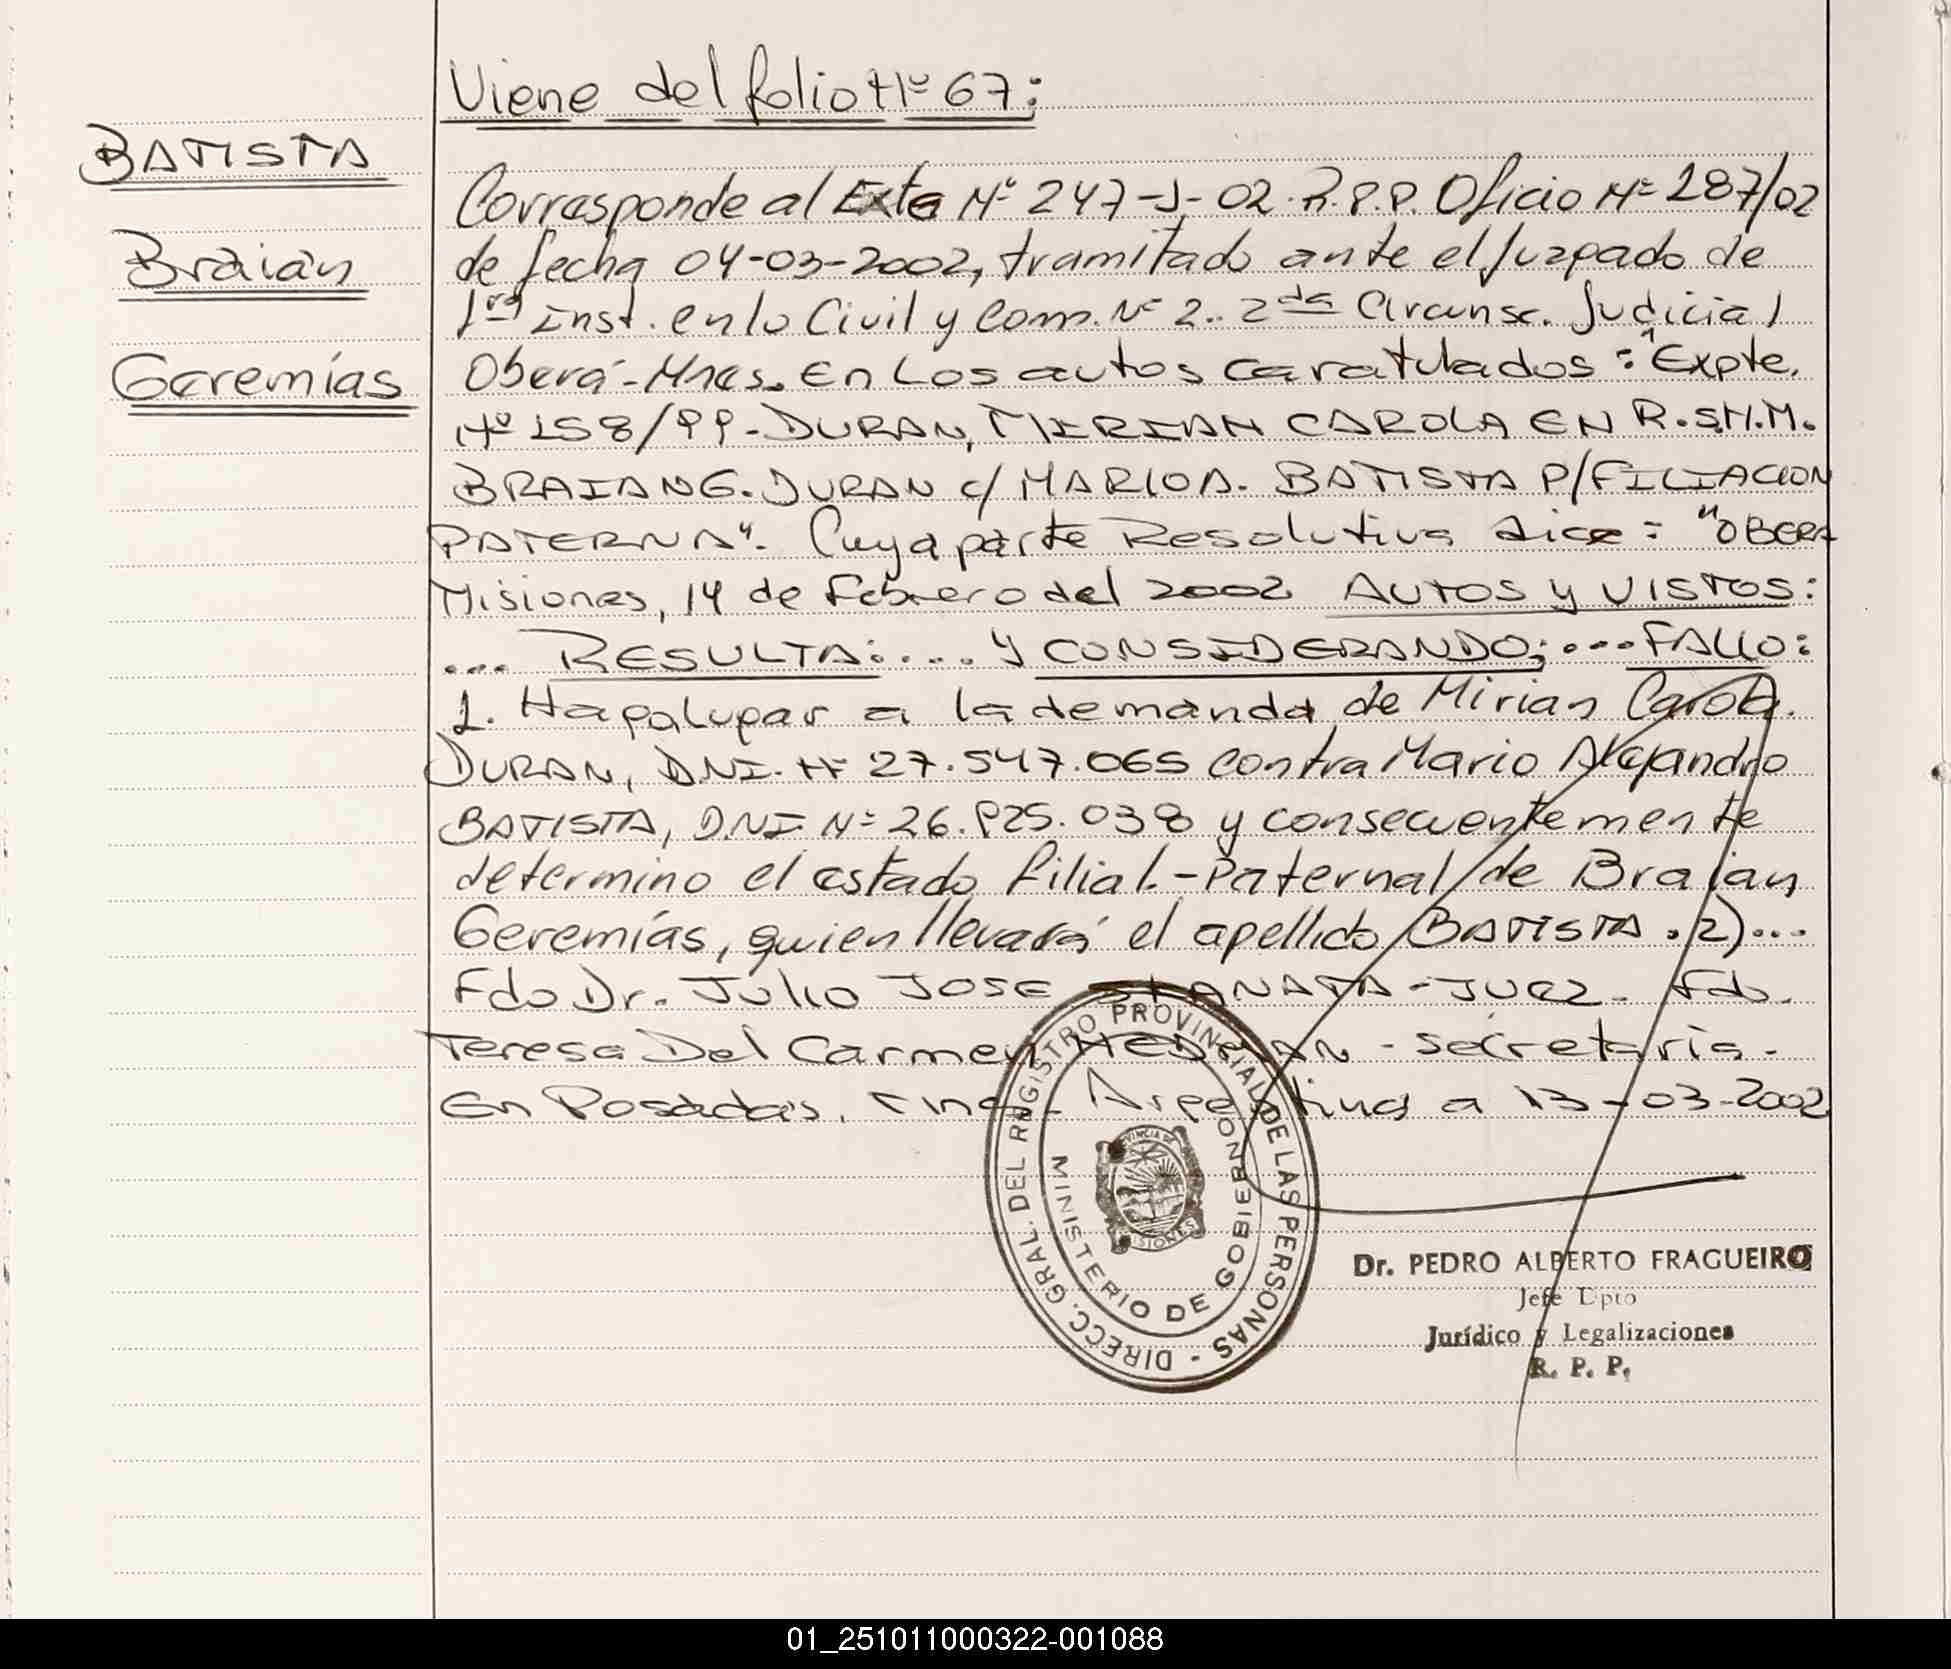 Viene del folio Nº 67:
BATISTA
Braian
Geremías
Corresponde al Exte Nº 247-J-02 R.P.P. Oficio Nº 187/02
de fecha 04-03-2002, tramitado ante el Juzgado de
1ra Inst. en lo Civil y Com. Nº 2.. 2da Circunsc. Judicial
Oberá-Mnes. En Los autos caratulados: "Expte.
Nº 158/99-DURAN, MIRIAN CAROLA EN R.S.H.M.
BRAIAN G. DURAN c/ MARIO A. BATISTA P/FILIACION
PATERNA". Cuya parte Resolutiva dice: "OBERA
Misiones, 14 de Febrero del 2002 AUTOS y VISTOS:
... RESULTA:.... y CONSIDERANDO;....FALLO:
1. Hagalugar a la demanda de Mirian Carola.
DURAN, DNI. Nº 27.547.065 contra Mario Alejandro
BATISTA, DNI Nº 26.925.038 y consecuentemente
determino el estado filial.-Paternal de Braian
Geremías, quien llevará el apellido BATISTA. 2)...
Fdo Dr. Julio JOSE -JUEZ. Fdo.
Teresa Del Carmen - Secretaria.
En Posadas, Mnes- Argentina a 13-03-2002
DIRECC. GRAL. DEL REGISTRO PROVINCIAL DE LAS PERSONAS -
MINISTERIO DE GOBIERNO
PROVINCIA DE
MISIONES
Dr. PEDRO ALBERTO FRAGUEIRO
Jefe Dpto
Jurídico y Legalizaciones
R. P. P.
01_251011000322-001088